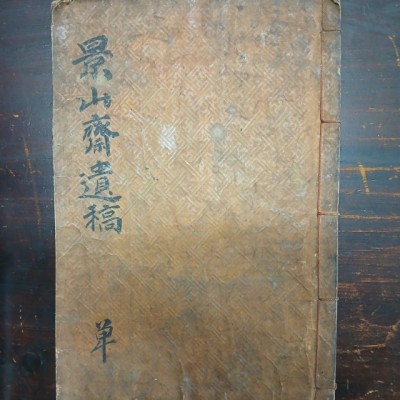 景山齋遺稿
单